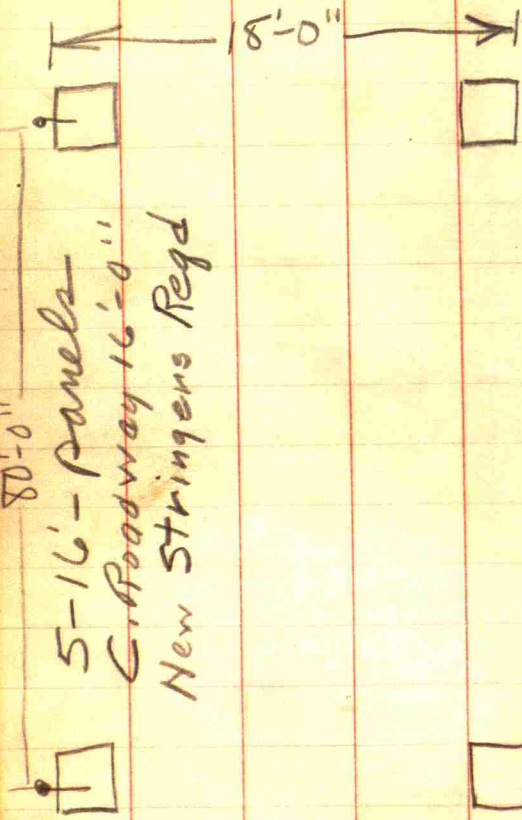 18'-0"
80'-0"
5-16'-Panels
C. Roadway 16'-0"
New Stringers Reqd